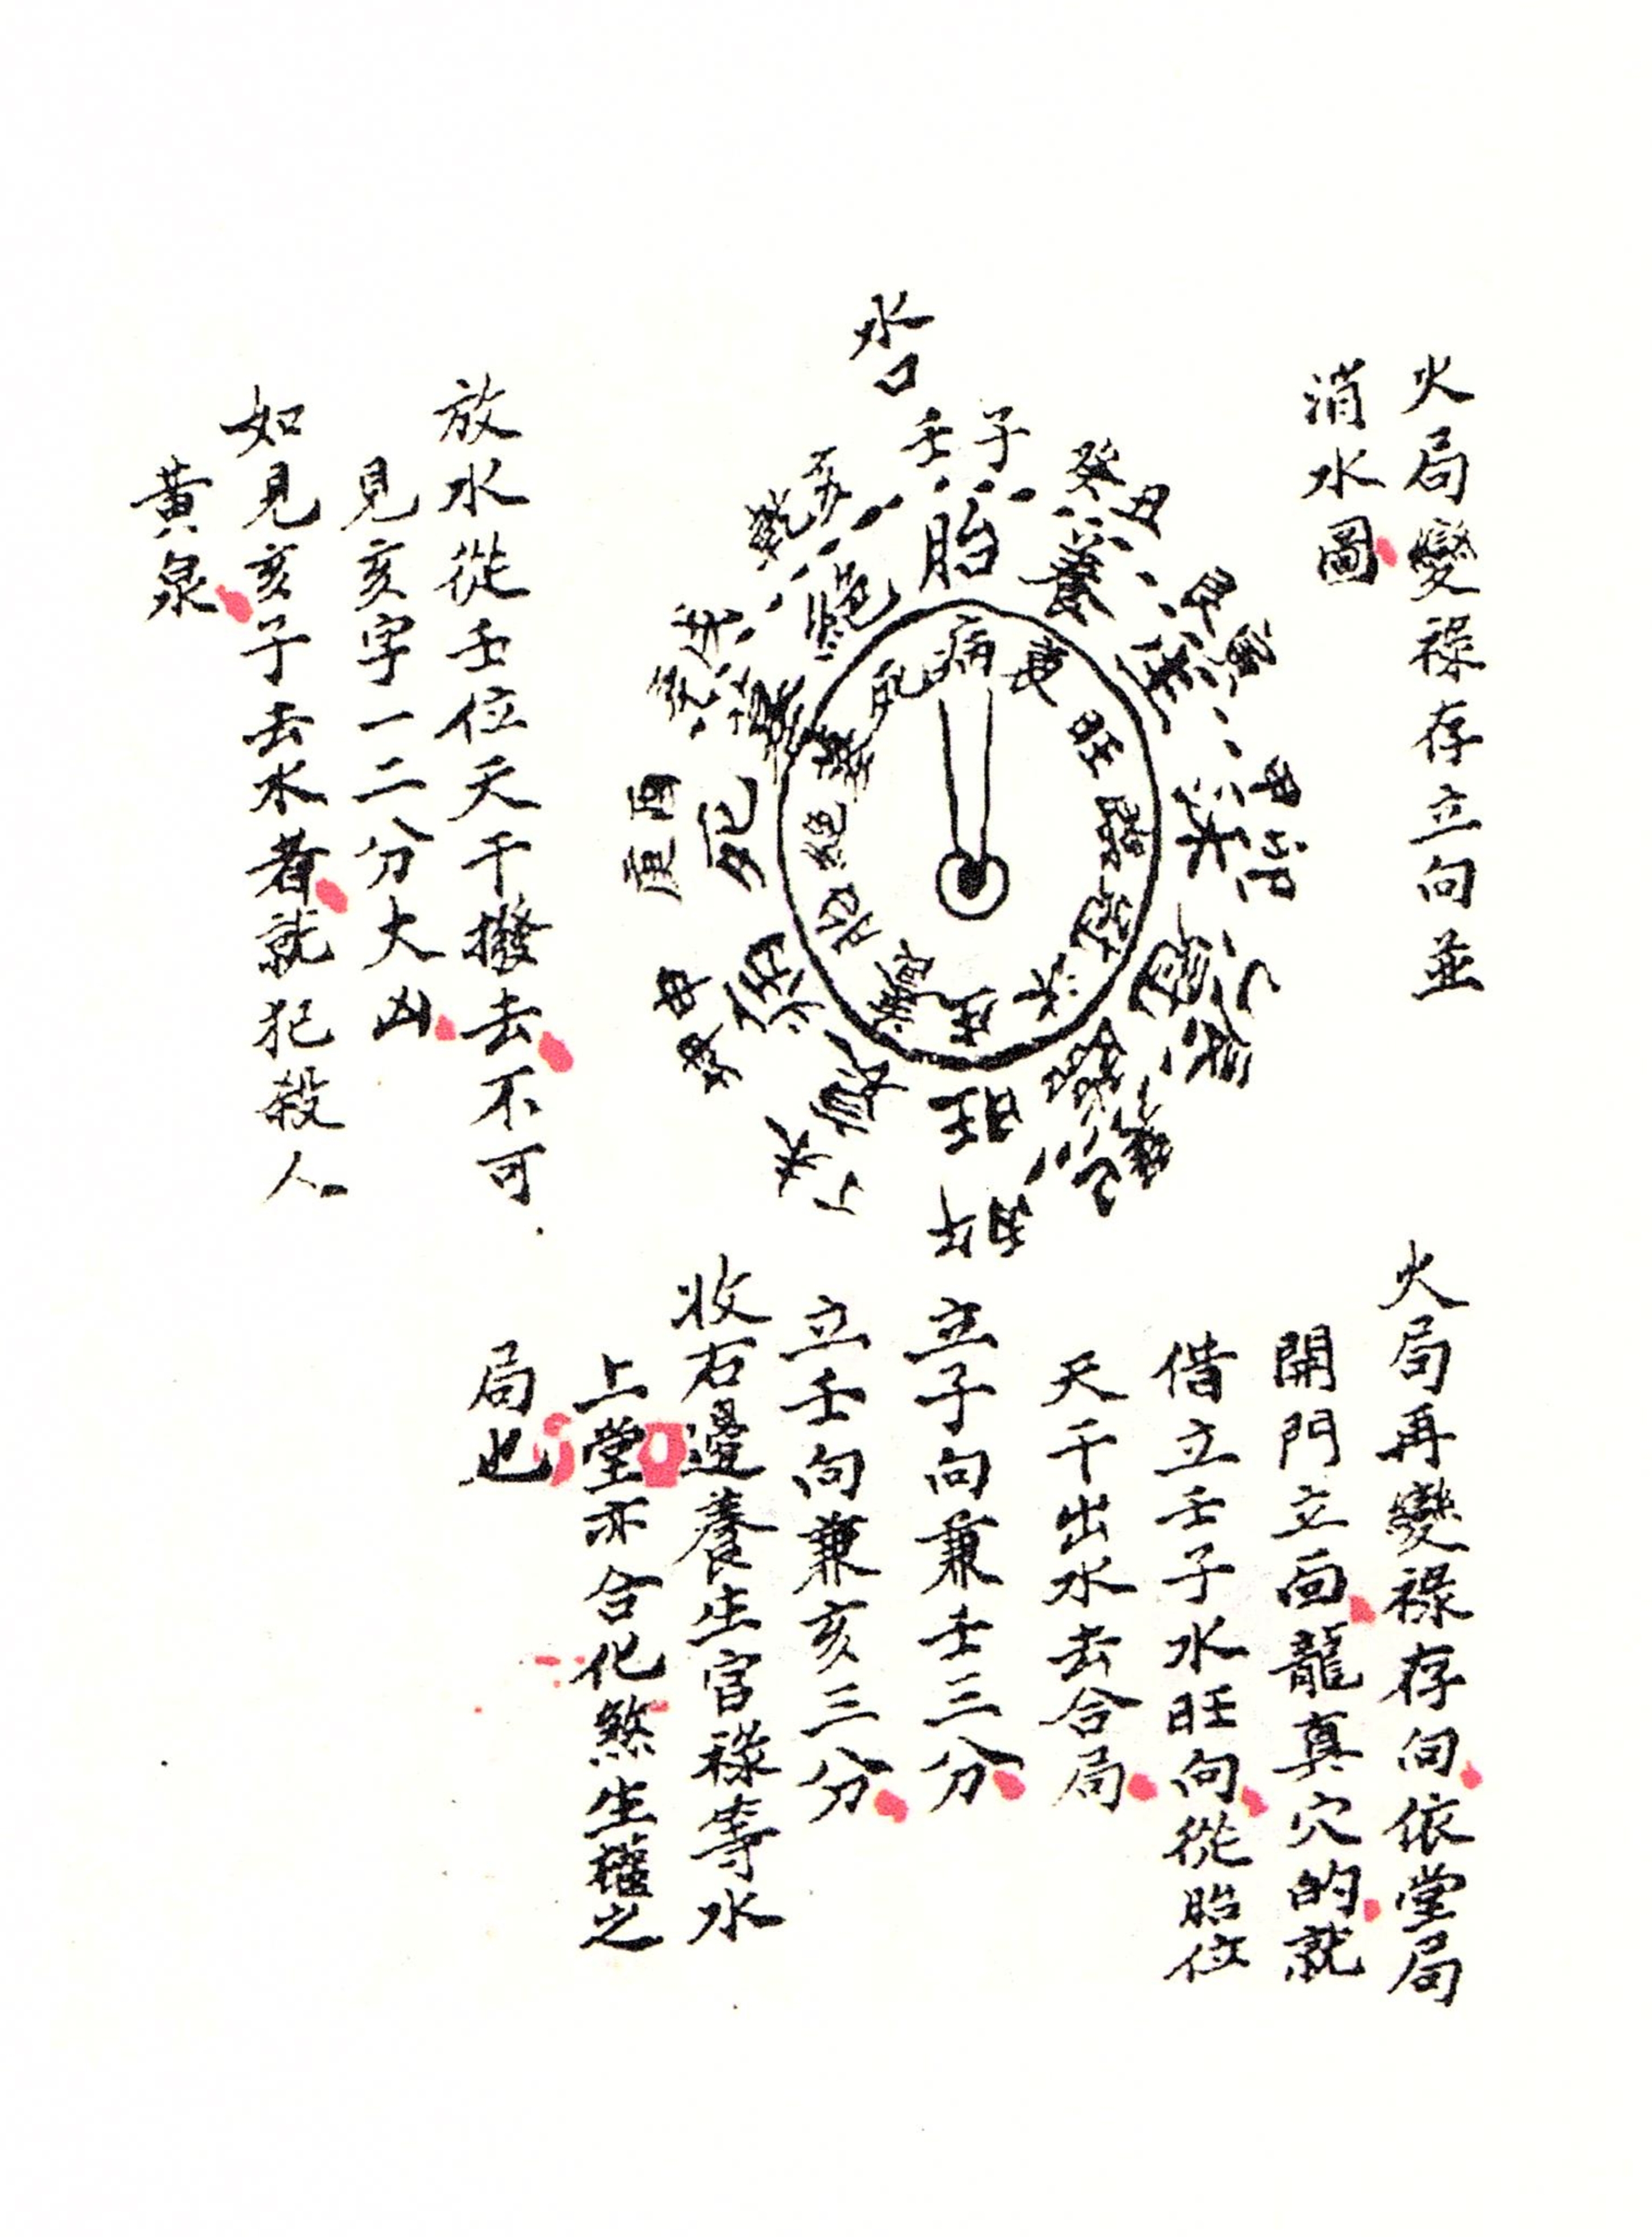 火局變祿存立向並
消水圖
水口
壬子
癸丑
艮寅
甲卯
乙辰
巽巳
丙午
丁未
坤申
庚酉
辛戌
乾亥
胎
養
生
沐
冠
臨
旺
衰
病
死
墓
絕
病
衰
旺
臨
冠
沐
生
養
胎
絕
墓
死
放水從壬位天干撥去不可
見亥字一二分大凶
如見亥子去水者就犯殺人
黃泉
火局再變祿存向依堂局
開門立向龍真穴的就
借立壬子水旺向從胎位
天干出水去合局
立子向兼壬三分
立壬向兼亥三分
收右邊養生官祿等水
上堂亦合化煞生權之
局也